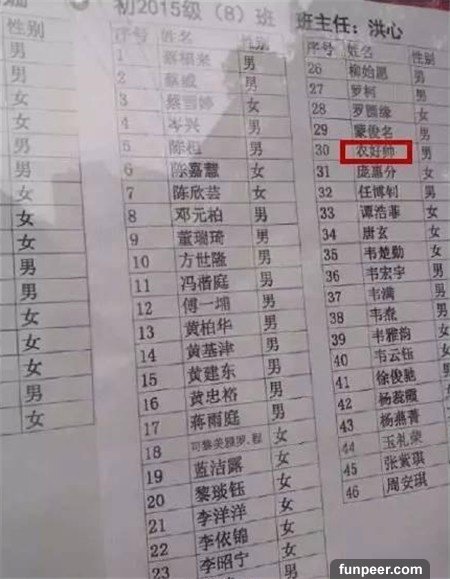 性别
男
男
女
男
男
女
女
女
男
男
女
女
女
男
女
初2015级（8）班 班主任：洪心
序号 姓名 性别
1 蔡福来 男
2 蔡威 男
3 蔡雪婷 女
4 岑兴 男
5 陈 男
6 陈嘉慧 女
7 陈欣芸 女
8 邓元柏 男
9 董瑞琦 男
10 方世隆 男
11 冯楷庭 男
12 傅一 男
13 黄柏华 男
14 黄基津 男
15 黄建东 男
16 黄忠裕 男
17 蒋雨庭 男
18 女
19 蓝洁露 女
20 黎琰钰 女
21 李洋洋 女
22 李依锦 女
23 李昭宁 女
序号 姓名 性别
26 柳始恩 男
27 罗柯 男
28 罗颐缘 女
29 蒙俊名 男
30 农好帅 男
31 庞惠分 女
32 任博钊 男
33 谭浩菲 女
34 唐玄 女
35 韦楚勤 女
36 韦宏宇 男
37 韦满 男
38 韦焘 男
39 韦雅韵 女
40 韦云钰 女
41 徐俊驰 男
42 杨薇霞 女
43 杨燕菁 女
44 玉礼荣 男
45 张紫琪 女
46 周安琪 女
funpeer.com